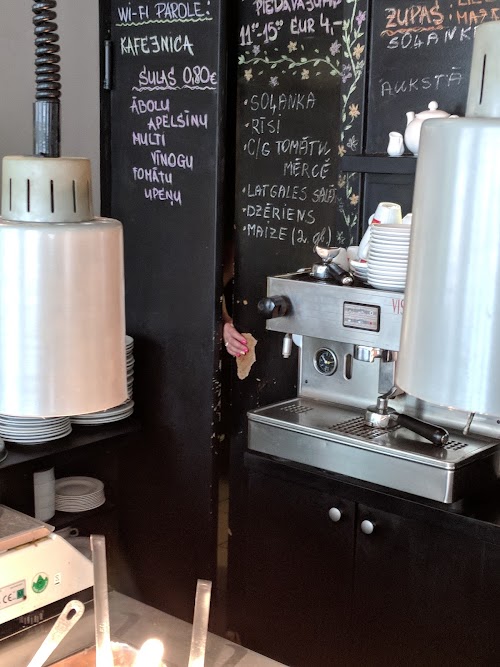 WI-FI PAROLE:
KAFEJNICA
SULAS 0,80€
ĀBOLU
APELSĪNU
MULTI
VĪNOGU
TOMĀTU
UPEŅU
PIEDĀVĀJUMS
11⁰⁰-15⁰⁰ EUR 4,-
• SOĻANKA
• RĪSI
• C/G TOMĀTU
MĒRCĒ
• LATGALES SALĀTI
• DZĒRIENS
• MAIZE (2. gb.)
ZUPAS
MAIZE
SOĻANKA
AUKSTĀ
VIS
CE